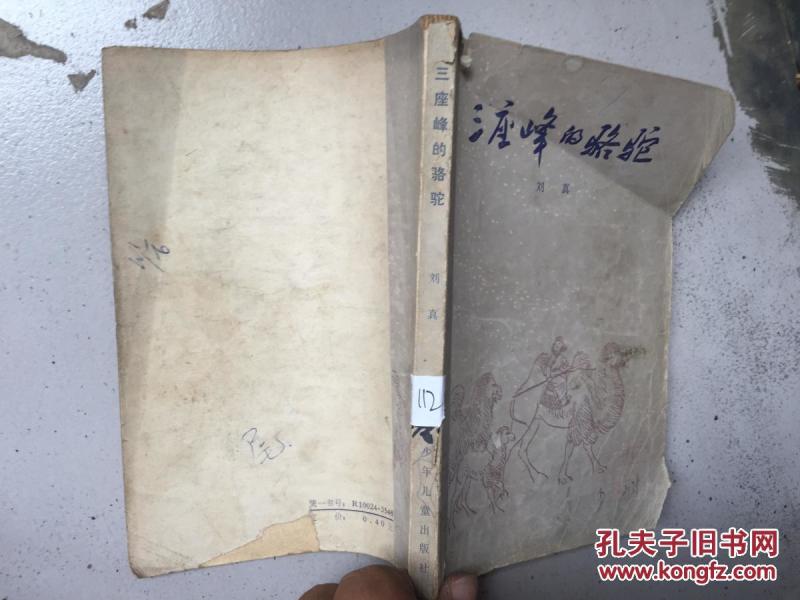 三座峰的骆驼
刘真
三座峰的骆驼
刘真
112
少年儿童出版社
统一书号：R10024·3546
定价：0.40元
孔夫子旧书网
www.kongfz.com